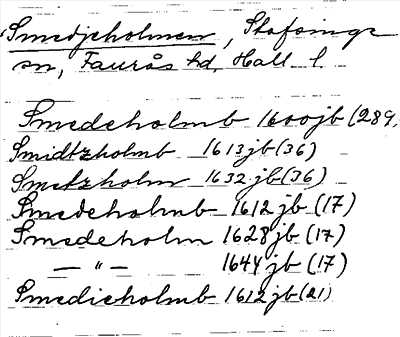 Smedjeholmen, Stafsinge
sn, Faurås hd, Hall. l.
Smedeholmb 1600jb (289,
Smidtzholmb 1613jb (36)
Smetzholm 1632jb (36)
Smedeholmb 1612jb (17)
Smedeholm 1628jb (17)
— " — 1644jb (17)
Smedieholmb 1612jb (21)